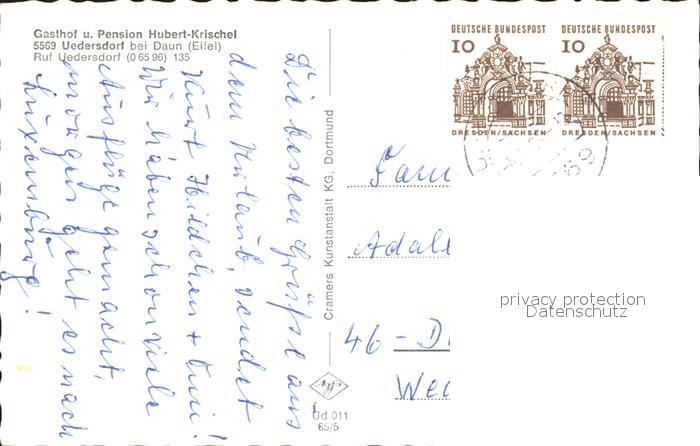 Gasthof u. Pension Hubert-Krischel
5569 Uedersdorf bei Daun (Eifel)
Ruf Uedersdorf (0 65 96) 135
Die besten Grüße aus
dem Urlaub, sendet
Hildchen +
Wir haben schon viele
Ausflüge gemacht,
morgen geht es nach
Luxemburg!
Cramers Kunstanstalt KG, Dortmund
Ud 011
65/5
DEUTSCHE BUNDESPOST
10
DRESDEN/SACHSEN
DEUTSCHE BUNDESPOST
10
DRESDEN/SACHSEN
Fam
Adal
46 - D
privacy protection
Datenschutz